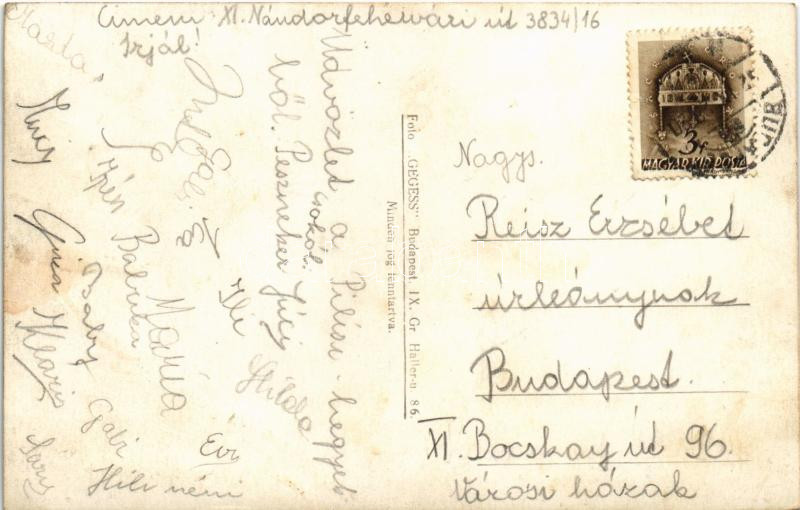 Címem XI. Nándorfehérvári út 3834/16
Írjál!
Üdvözlet a Pilisi-hegyek
ből. csókol:
Peszneker Juci
Ili Hilda
Márta
Éva
Baba
Mária
Klári
Gabi
Évi
Hili néni
Sári
Foto "GEGESS" Budapest, IX. Gr Haller-u 86.
Minden jog fenntartva.
3f
MAGYAR KIR. POSTA
Nagys.
Reisz Erzsébet
úrleánynak
Budapest.
XI. Bocskay út 96.
Városi házak